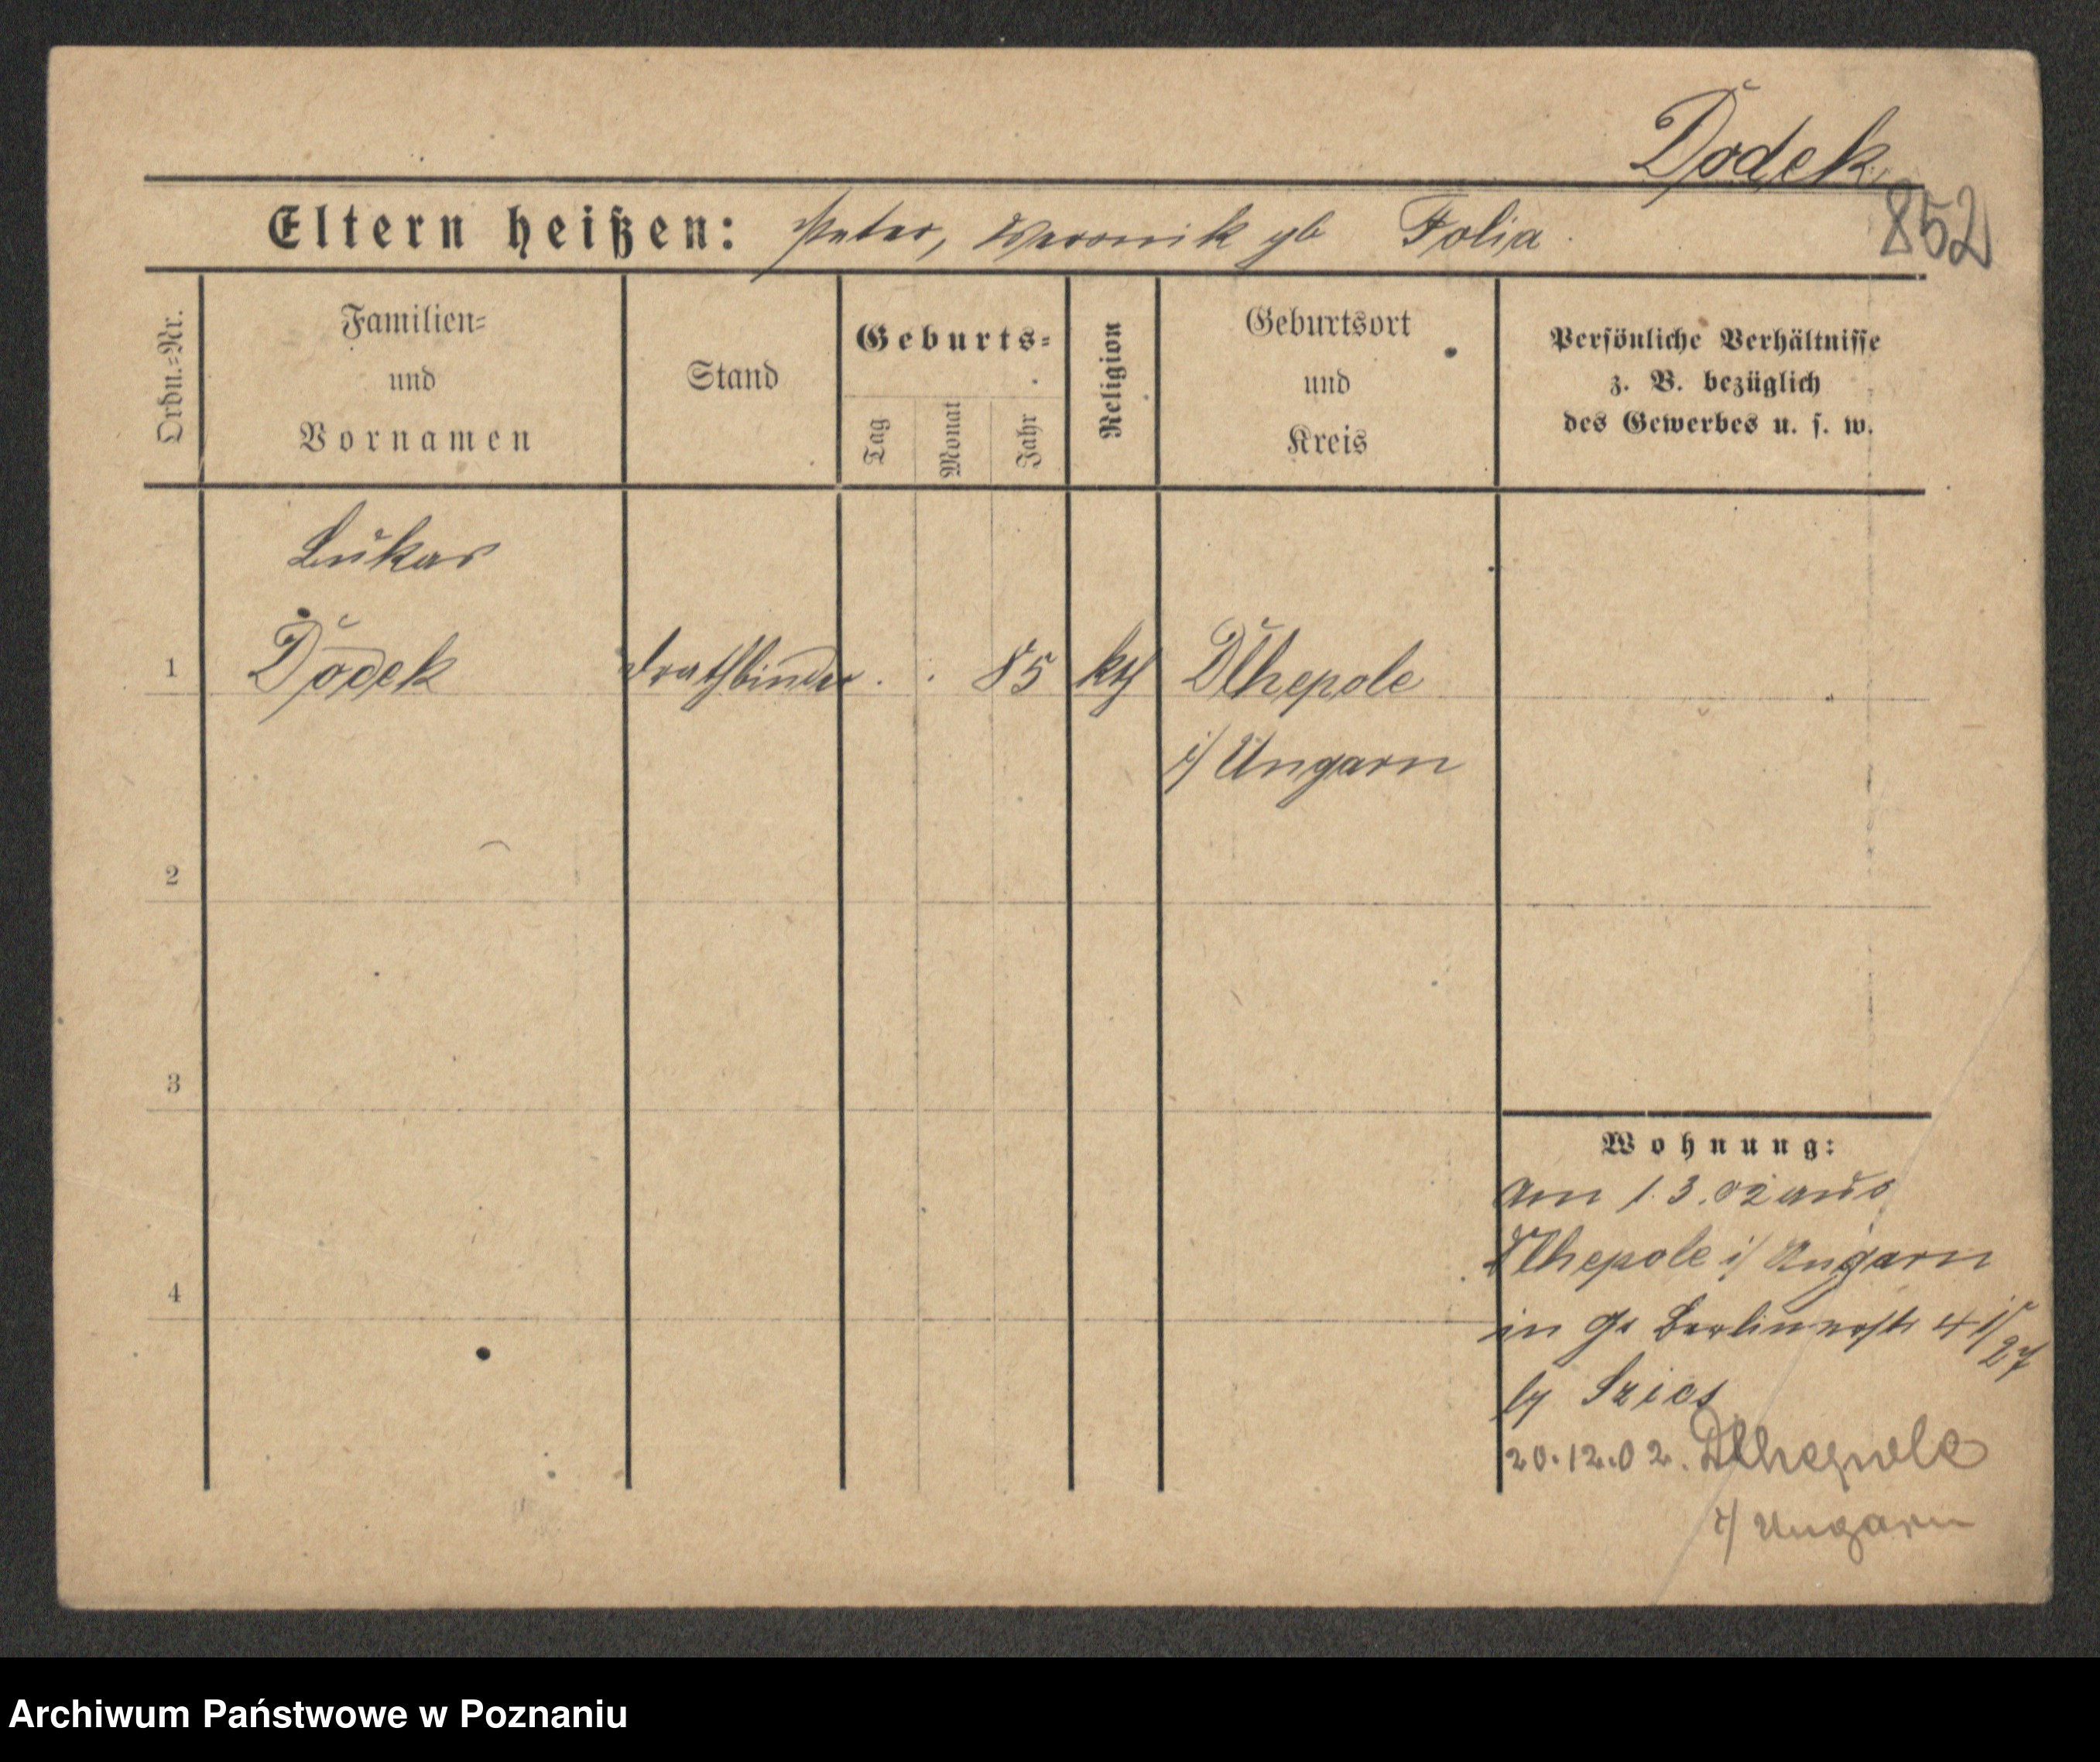 Dodek
852
Eltern heißen: Peter, Weronik gb Folia
Ordn.-Nr.
Familien-
und
Vornamen
Stand
Geburts-
Tag
Monat
Jahr
Religion
Geburtsort
und
Kreis
Persönliche Verhältnisse
z. B. bezüglich
des Gewerbes u. s. w.
Lukas
1 Dodek drathbinder . . 85 kth Dlhepole
i/ Ungarn
2
3
4
Wohnung:
am 1.3.02 aus
Dlhepole i/ Ungarn
in Berlinerstr 4 1/27
by
20.12.02. Dlhepole
i/ Ungarn
Archiwum Państwowe w Poznaniu